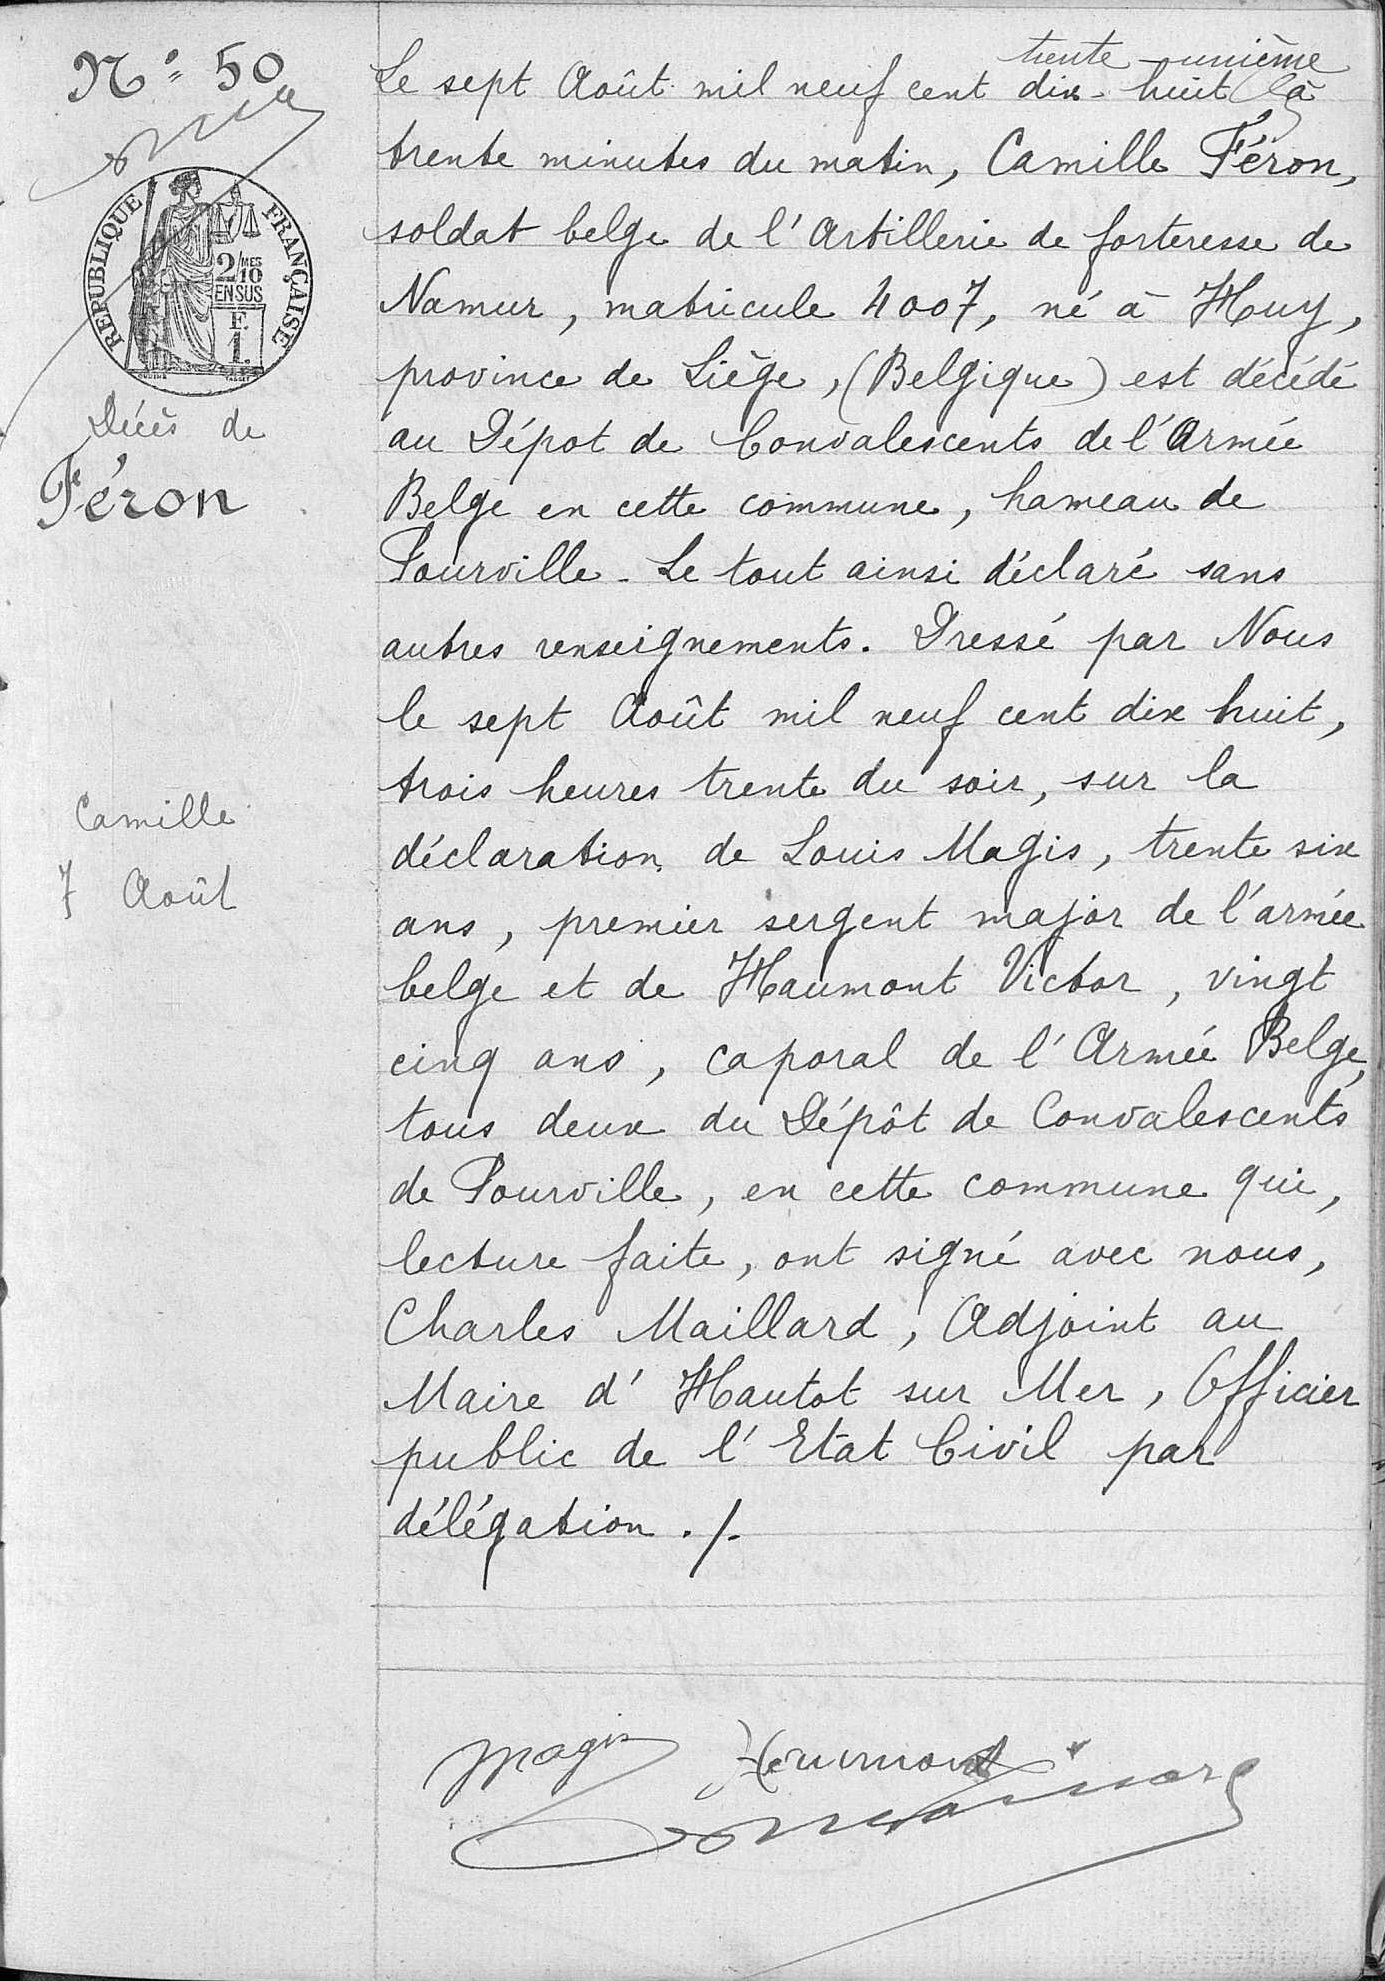 N° 50
REPUBLIQUE FRANÇAISE
2/10 MES
EN SUS
F.
1.
Décès de
Féron
Camille
7 Août
trente-unième
Le sept Août mil neuf cent dix-huit à
trente minutes du matin, Camille Féron,
soldat belge de l'Artillerie de forteresse de
Namur, matricule 4007, né à Huy,
province de Liège, (Belgique) est décédé
au Dépot de Convalescents de l'Armée
Belge en cette commune, hameau de
Pourville - Le tout ainsi déclaré sans
autres renseignements. Dressé par Nous
le sept Août mil neuf cent dix huit,
trois heures trente du soir, sur la
déclaration de Louis Magis, trente six
ans, premier sergent major de l'armée
belge et de Haumont Victor, vingt
cinq ans, caporal de l'Armée Belge,
tous deux du Dépôt de Convalescents
de Pourville, en cette commune qui,
lecture faite, ont signé avec nous,
Charles Maillard, Adjoint au
Maire d'Hautot sur Mer, Officier
public de l'Etat Civil par
délégation ./.
Magis Haumont